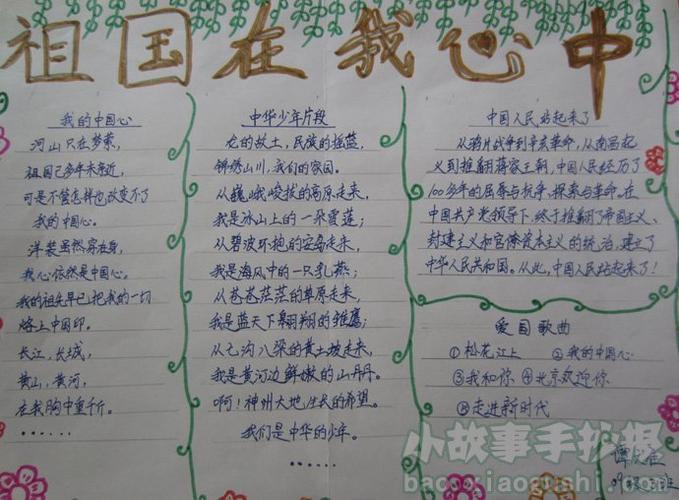 祖国在我心中
我的中国心
河山只在梦萦,
祖国已多年未亲近,
可是不管怎样也改变不了
我的中国心。
洋装虽然穿在身,
我心依然是中国心。
我的祖先早已把我的一切
烙上中国印。
长江,长城,
黄山,黄河,
在我胸中重千斤。
……
中华少年片段
龙的故土,民族的摇篮,
锦绣山川,我们的家园。
从巍峨峻拔的高原走来,
我是冰山上的一朵雪莲;
从碧波环抱的宝岛走来,
我是海风中的一只乳燕;
从苍苍茫茫的草原走来,
我是蓝天下翱翔的雏鹰;
从七沟八梁的黄土坡走来,
我是黄河边鲜嫩的山丹丹。
啊!神州大地生长的希望。
我们是中华的少年。
……
中国人民站起来了
从鸦片战争到辛亥革命,从南昌起
义到推翻蒋家王朝,中国人民经历了
100多年的屈辱与抗争、探索与革命。在
中国共产党领导下,终于推翻了帝国主义、
封建主义和官僚资本主义的统治,建立了
中华人民共和国。从此,中国人民站起来了!
爱国歌曲
①松花江上 ②我的中国心
③我和你 ④北京欢迎你
⑤走进新时代
小故事手抄报
baoxiaogushi.com